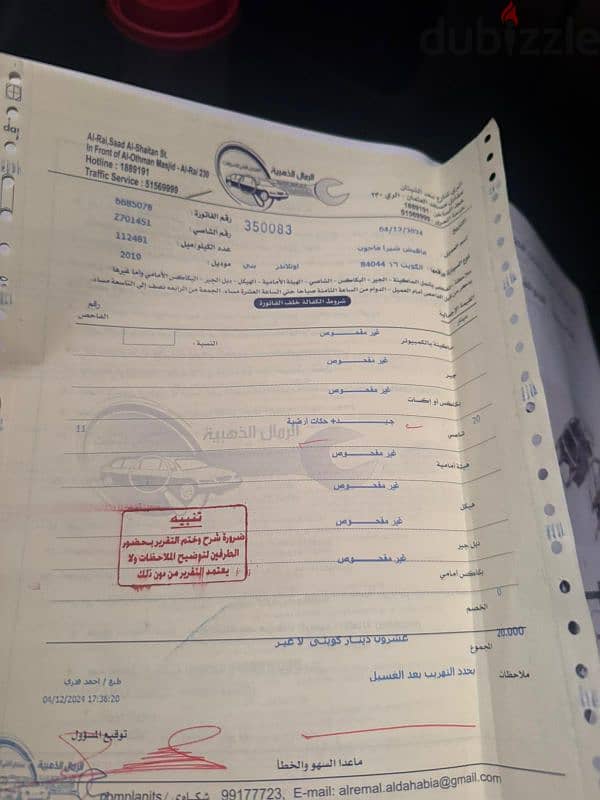 dubizzle
Al-Rai,Saad Al-Shaitan St.
In Front of Al-Othman Masjid - Al-Rai 230
Hotline : 1889191
Traffic Service : 51569999
الرمال الذهبية
1889191
51569999
رقم الفاتورة : 6685078
350083
04/12/2024
رقم الشاسي : 2701451
عدد الكيلو/ميل : 112481
الكويت ١٦ 84044
اوتلاندر
موديل : 2010
شروط الكفالة خلف الفاتورة
رقم الفاحص
النسبة :
ماكينة بالكمبيوتر
غير مفحوص
جير
غير مفحوص
غير مفحوص
شاصي
20
جيد+ حكات ارضية
11
هيئة أمامية
غير مفحوص
هيكل
غير مفحوص
دبل جير
غير مفحوص
بكاكس امامي
غير مفحوص
الرمال الذهبية
تنبيه
ضرورة شرح وختم التقرير بحضور
الطرفين لتوضيح الملاحظات ولا
يعتمد التقرير من دون ذلك
0
الخصم
20.000
المجموع
عشرون دينار كويتي لا غير
ملاحظات
يحدد التهريب بعد الغسيل
04/12/2024 17:36:20
توقيع المسؤول
ماعدا السهو والخطأ
الرمال الذهبية
شكاوى / 99177723, E-mail: alremal.aldahabia@gmail.com